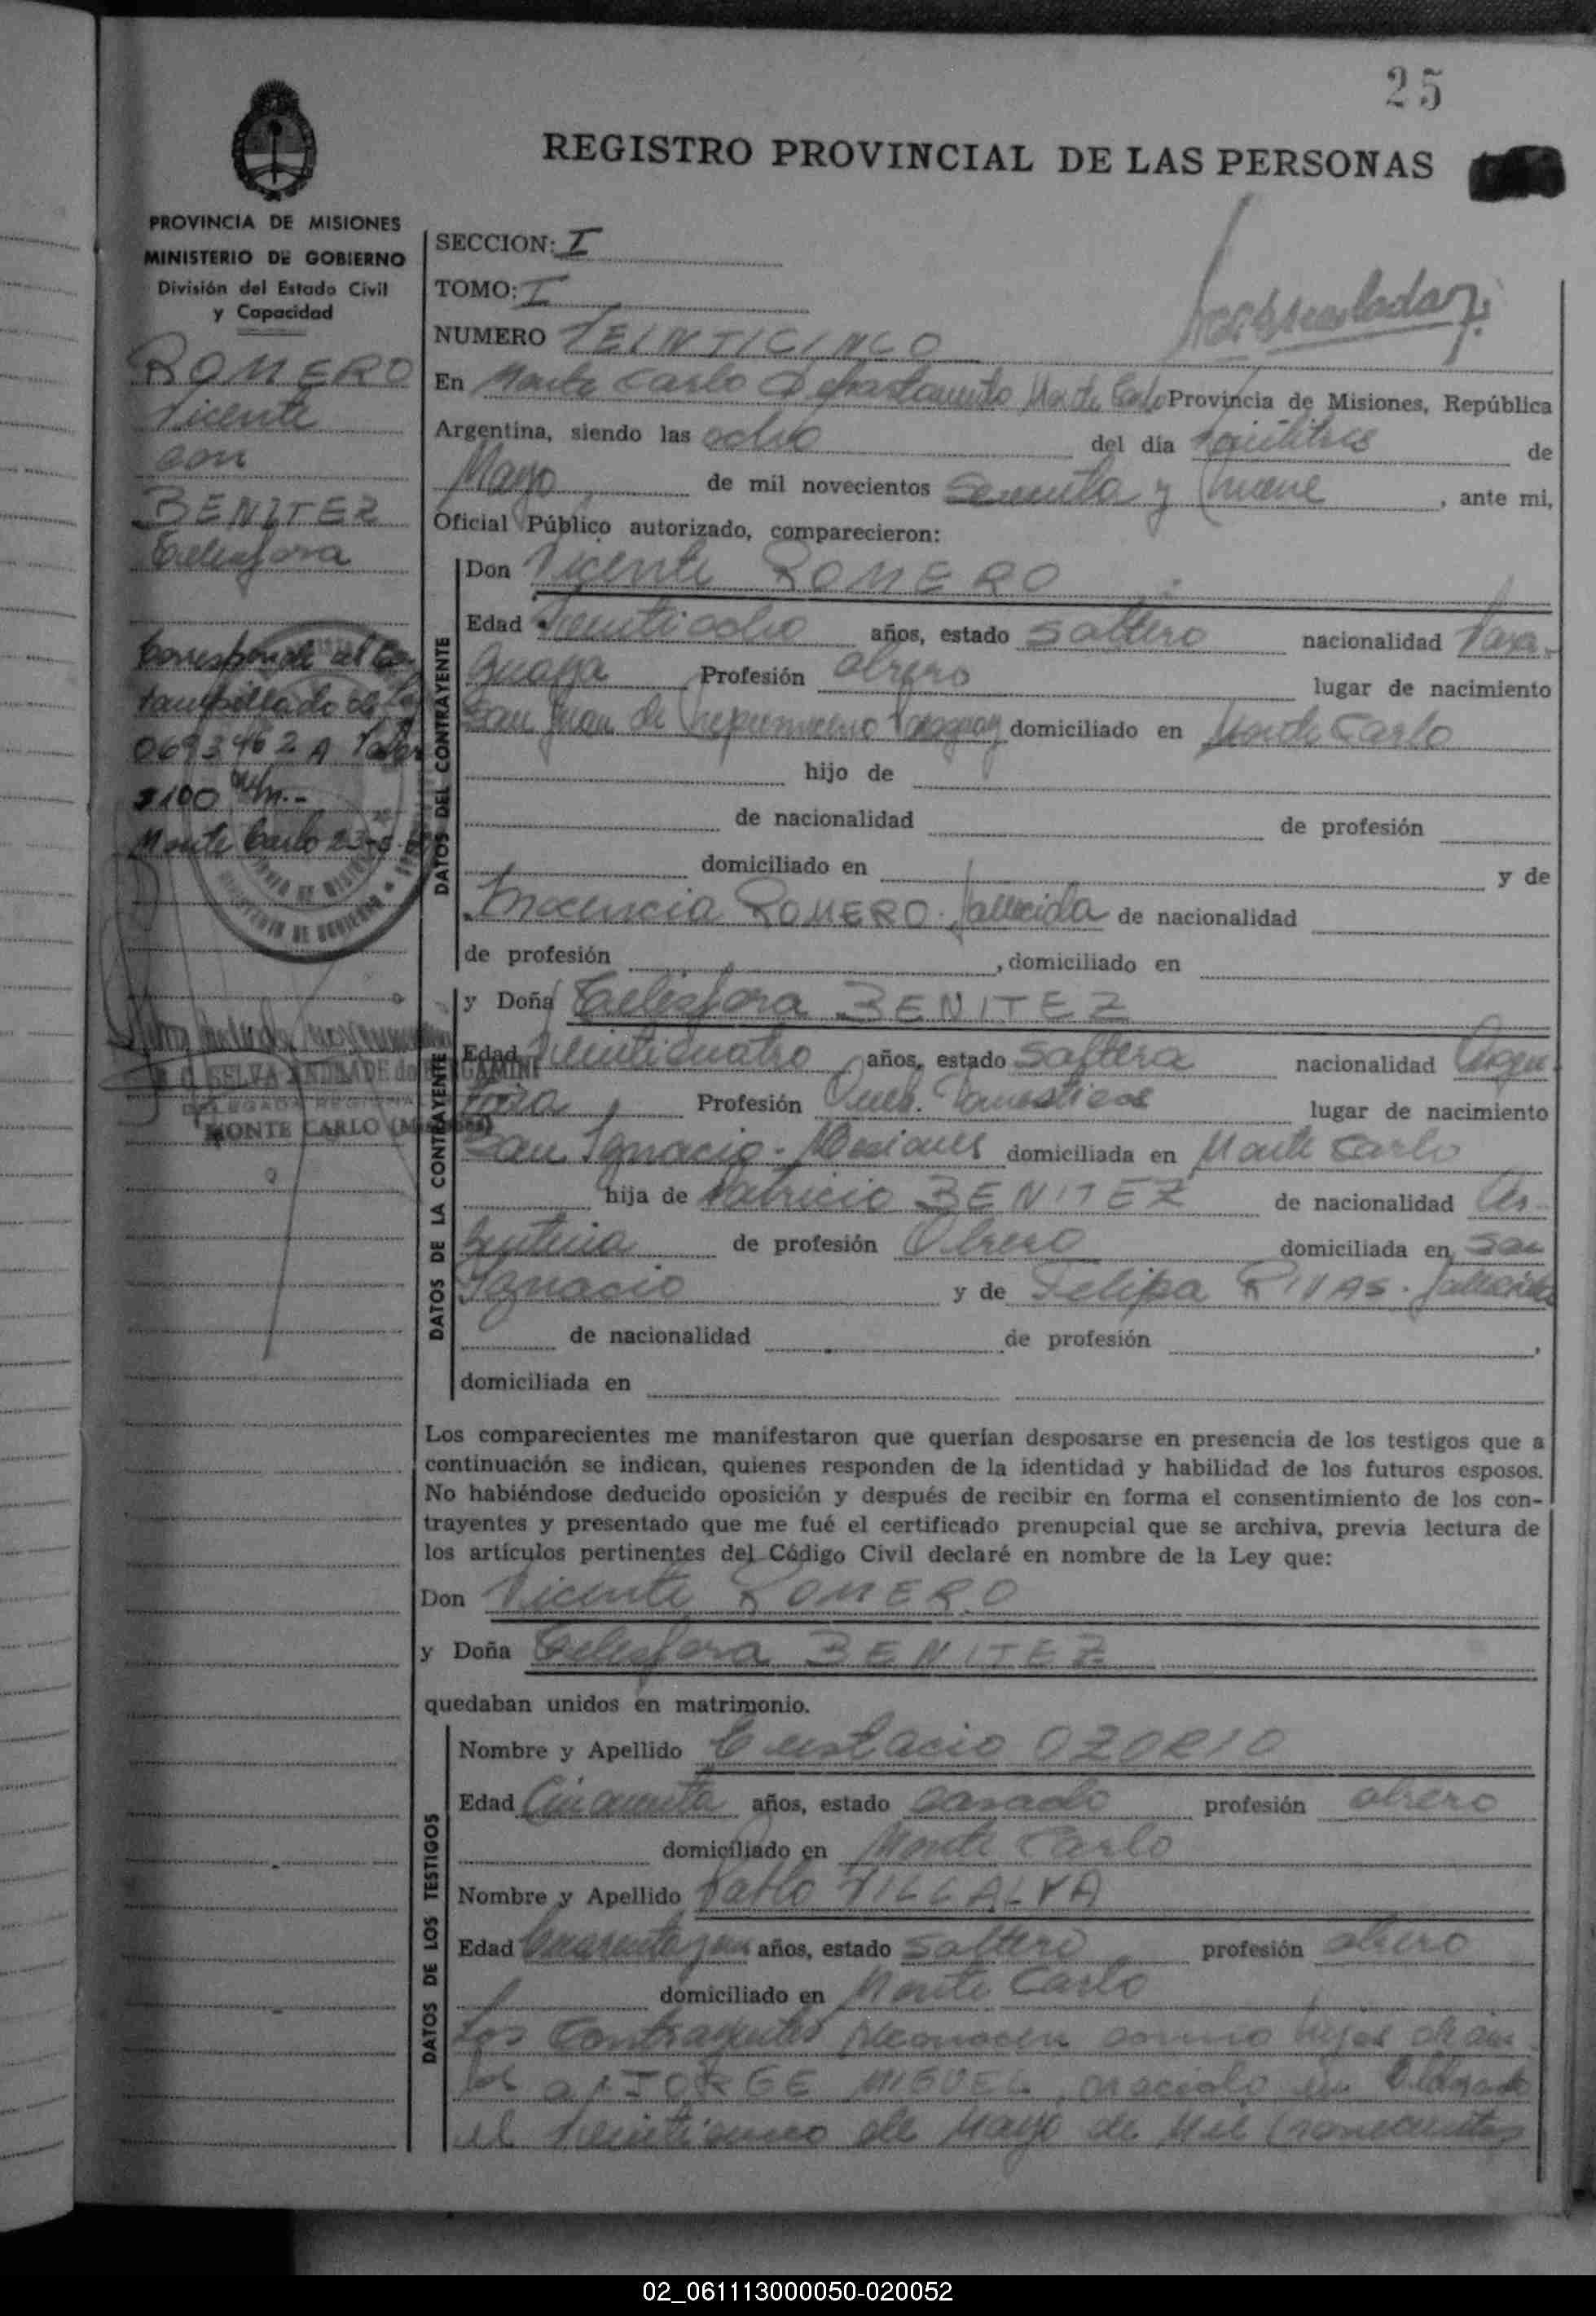 25
REGISTRO PROVINCIAL DE LAS PERSONAS
PROVINCIA DE MISIONES
MINISTERIO DE GOBIERNO
División del Estado Civil
y Capacidad
ROMERO
Vicente
con
BENITEZ
Telesfora
Corresponde al Es
tampillado de
0693462 A Valor
$100 m/n.-
Monte Carlo 23-5-
SELVA ANDRADE de BERGAMINI
DELEGADA REGISTRO
MONTE CARLO (Misiones)
SECCION: I
TOMO: I
NUMERO VEINTICINCO
En Monte Carlo Departamento Monte Carlo Provincia de Misiones, República
Argentina, siendo las ocho del día veintitres de
Mayo de mil novecientos sesenta y nueve, ante mi,
Oficial Público autorizado, comparecieron:
DATOS DEL CONTRAYENTE
Don Vicente ROMERO
Edad Veintiocho años, estado soltero nacionalidad Para-
guaya Profesión obrero lugar de nacimiento
San Juan de Nepumuceno Paraguay domiciliado en Monte Carlo
hijo de
de nacionalidad de profesión
domiciliado en y de
Inocencia ROMERO. fallecida de nacionalidad
de profesión , domiciliado en
DATOS DE LA CONTRAYENTE
y Doña Telesfora BENITEZ
Edad Veinticuatro años, estado soltera nacionalidad Argen-
tina Profesión Queh. Domesticos lugar de nacimiento
San Ignacio - Misiones domiciliada en Monte Carlo
hija de Patricio BENITEZ de nacionalidad Ar-
gentina de profesión Obrero domiciliada en San
Ignacio y de Felipa RIVAS. fallecida
de nacionalidad de profesión ,
domiciliada en
Los comparecientes me manifestaron que querían desposarse en presencia de los testigos que a
continuación se indican, quienes responden de la identidad y habilidad de los futuros esposos.
No habiéndose deducido oposición y después de recibir en forma el consentimiento de los con-
trayentes y presentado que me fué el certificado prenupcial que se archiva, previa lectura de
los artículos pertinentes del Código Civil declaré en nombre de la Ley que:
Don Vicente ROMERO
y Doña Telesfora BENITEZ
quedaban unidos en matrimonio.
DATOS DE LOS TESTIGOS
Nombre y Apellido Eustacio OZORIO
Edad Cincuenta años, estado casado profesión obrero
domiciliado en Monte Carlo
Nombre y Apellido Pablo VILLALVA
Edad Cuarenta años, estado soltero profesión obrero
domiciliado en Monte Carlo
Los Contrayentes reconocen como hijos de am-
bos a: JORGE MIGUEL, nacido en Eldorado
el Veinticinco de Mayo de Mil novecientos
02_061113000050-020052